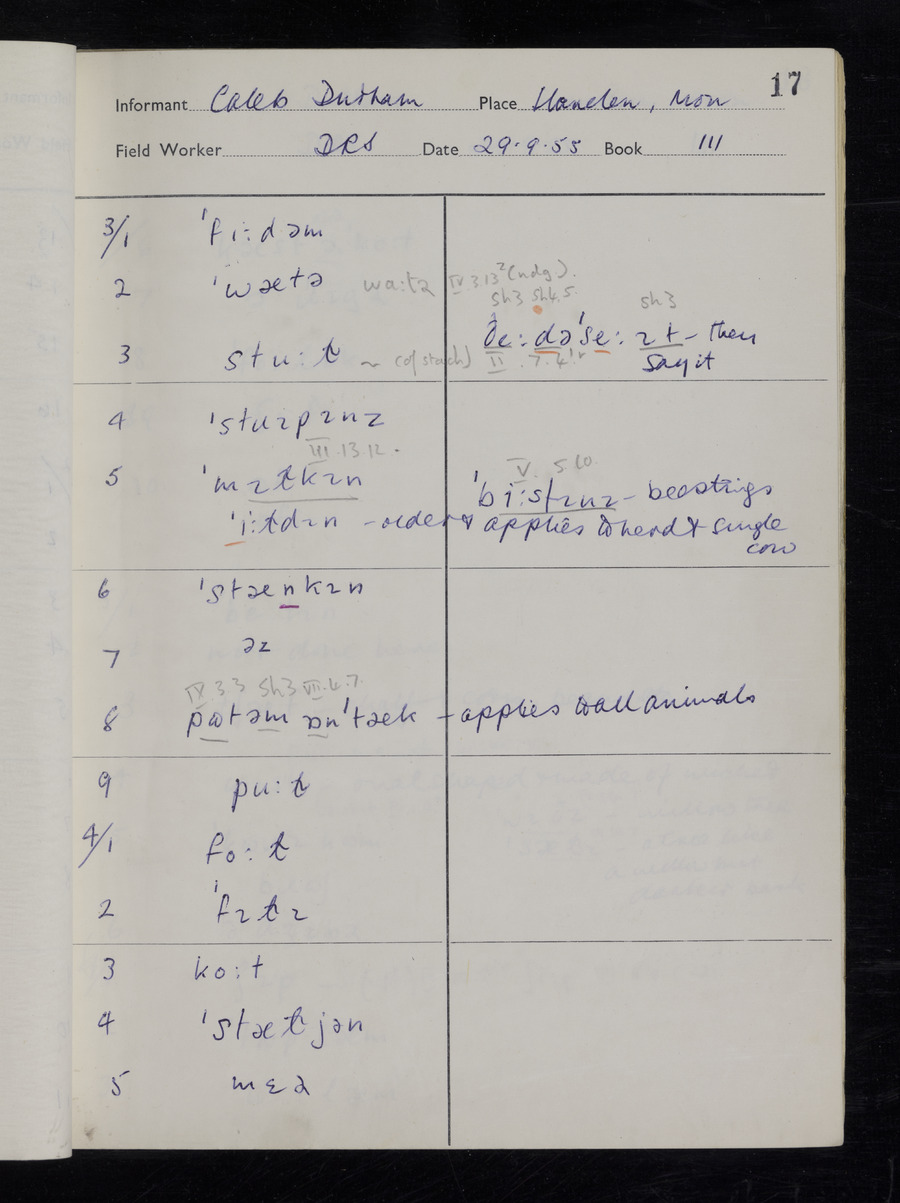 17
Informant Caleb Durham Place Llanelen, Mon
Field Worker DRS Date 29.9.55 Book III
3/1 ˈfiːdəm
2 ˈwætə waːtə IV 3.13² (ndg).
sh3 sh4.5. sh3
3 stuːt ~ (of stach) ðeː dəˈseː ɪt - they
II .7.4 say it
4 ˈstuɪpɪnz
III.13.12.
5 ˈmɪɫkɪn V. 5.10
ˈbiːstɪnz - beestings
ˈiːldɪn - older & applies to herd & single
cow
6 ˈstænkɪn
7 əz
IX 3 3 Sh3 VII.4.7.
8 pʊt əm ɒnˈtæk - applies to all animals
9 puːɫ
4/1 foːɫ
2 ˈfɪɫɪ
3 koːt
4 ˈstæɫjən
5 mɛə